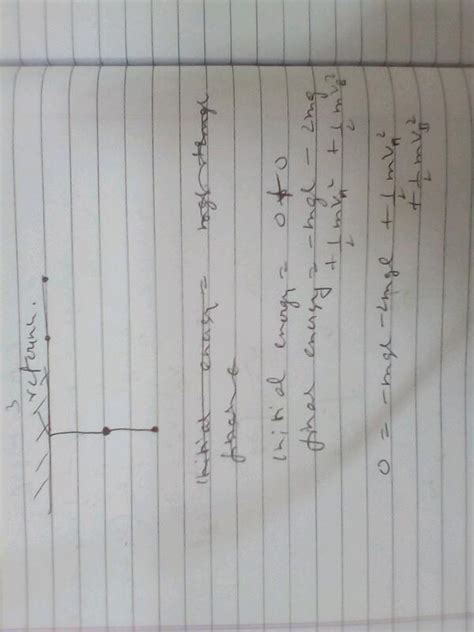 reference.
Initial energy = mgl + mgl
Initial energy = 0 + 0
final energy = -mgl - 2mg
+ 1/2 mv_A^2 + 1/2 mv_B^2
0 = -mgl - 2mgl + 1/2 mv_A^2
+ 1/2 mv_B^2